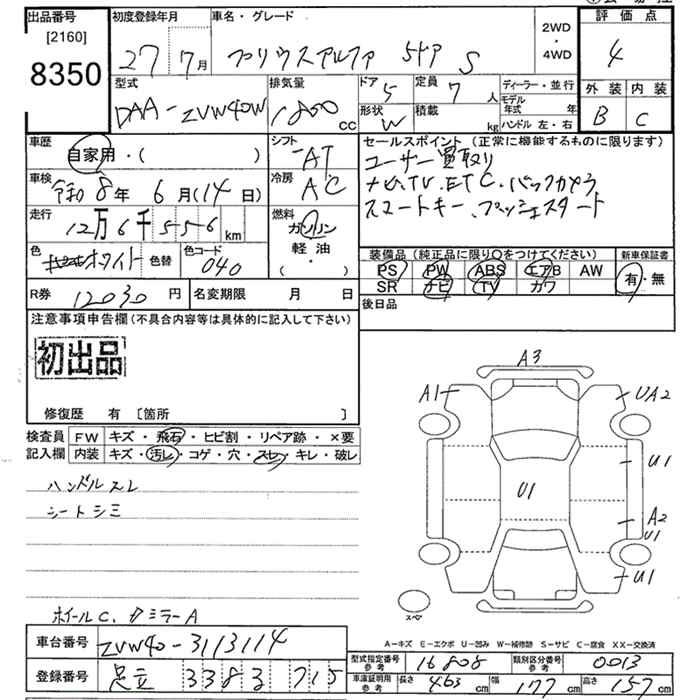 出品番号 初度登録年月 車名・グレード 2WD・4WD 評価点
[2160]
8350
27 7月 プリウスアルファ 5ドア S 4
型式 排気量 ドア 5 定員 7人 ディーラー・並行 外装 内装
DAA-ZVW40W 1800cc 形状 W 積載 kg モデル年式 年 B C
ハンドル 左・右
車歴 シフト セールスポイント (正常に機能するものに限ります)
自家用・( ) AT ユーザー買取り
車検 冷房 ナビ、TV、ETC、バックカメラ
令和8年6月(14日) AC スマートキー、プッシュスタート
走行 燃料
12万6千556km ガソリン
軽油
( ・ )
色 ホワイト 色替 色コード 040
装備品 (純正品に限り○をつけてください) 新車保証書
PS PW ABS エアB AW 有・無
SR ナビ TV カワ
R券 12030円 名変期限 月 日 後日品
注意事項申告欄(不具合内容等は具体的に記入して下さい)
初出品
修復歴 有 [箇所 ]
検査員 FW キズ・飛石・ヒビ割・リペア跡・×要
記入欄 内装 キズ・汚レ・コゲ・穴・スレ・キレ・破レ
ハンドルスレ
シートシミ
A3
A1 UA2
U1
U1
A2
U1
U1
スペア
ホイールC、ミラーA
A-キズ E-エクボ U-凹み W-補修跡 S-サビ C-腐食 XX-交換済
車台番号 ZVW40-3113114
型式指定番号 参考 16808 類別区分番号 参考 0013
登録番号 足立 3383 715
車庫証明用 参考 長さ 463cm 幅 177cm 高さ 157cm